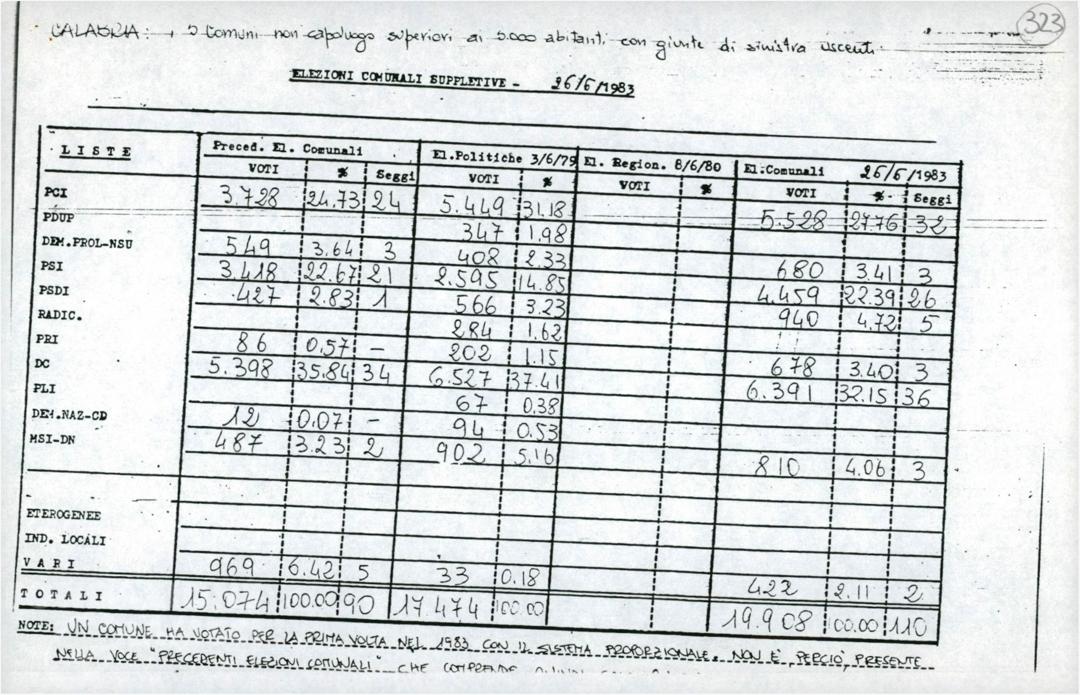 323
CALABRIA: 5 Comuni non capoluogo superiori ai 5.000 abitanti con giunte di sinistra uscenti
ELEZIONI COMUNALI SUPPLETIVE - 26/6/1983
LISTE Preced. El. Comunali El.Politiche 3/6/79 El. Region. 8/6/80 El.Comunali 26/6/1983
VOTI % Seggi VOTI % VOTI % VOTI % Seggi
PCI 3.728 24.73 24 5.449 31.18 5.528 27.76 32
PDUP 347 1.98
DEM.PROL-NSU 549 3.64 3 408 2.33 680 3.41 3
PSI 3.418 22.67 21 2.595 14.85 4.459 22.39 26
PSDI 427 2.83 1 566 3.23 940 4.72 5
RADIC. 284 1.62
PRI 86 0.57 - 202 1.15 678 3.40 3
DC 5.398 35.84 34 6.527 37.41 6.391 32.15 36
PLI 67 0.38
DEM.NAZ-CD 12 0.07 - 94 0.53
MSI-DN 487 3.23 2 902 5.16 810 4.06 3
ETEROGENEE
IND. LOCALI
VARI 969 6.42 5 33 0.18 422 2.11 2
TOTALI 15.074 100.00 90 17.474 100.00 19.908 100.00 110
NOTE: UN COMUNE HA VOTATO PER LA PRIMA VOLTA NEL 1983 CON IL SISTEMA PROPORZIONALE. NON E' PERCIO' PRESENTE
NELLA VOCE "PRECEDENTI ELEZIONI COMUNALI" CHE COMPRENDE QUINDI